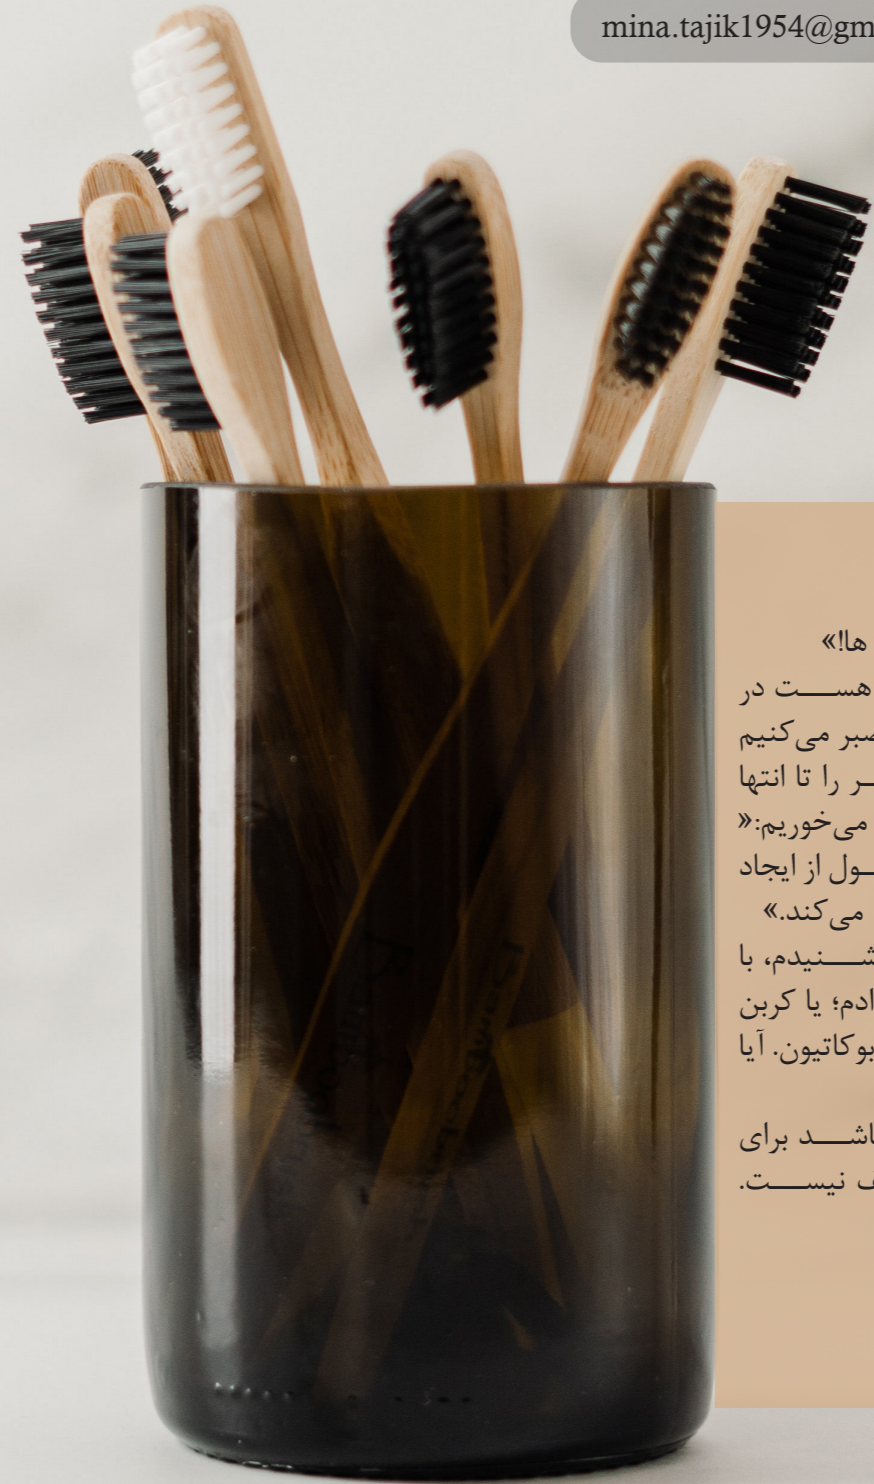 mina.tajik1954@gm
ها!»
هست در
صبر می‌کنیم
ـر را تا انتها
می‌خوریم:«
ـول از ایجاد
می‌کند.»
شنیدم، با
ادم؛ یا کربن
بوکاتیون. آیا
اشد برای
ف نیست.